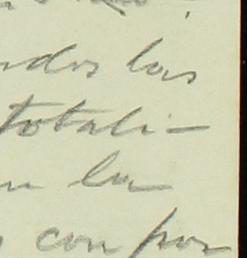 ndos las
totali-
en la
con por